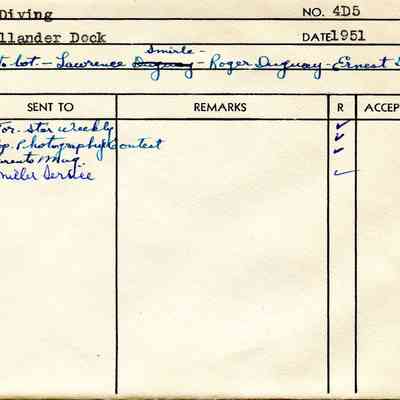 Diving NO. 4D5
llander Dock DATE 1951
Smirle -
to bot. - Lawrence Duguay - Roger Duguay - Ernest
SENT TO REMARKS R ACCEP
Tor. Star weekly
Pop. Photography Contest
arents Mag.
Miller Service